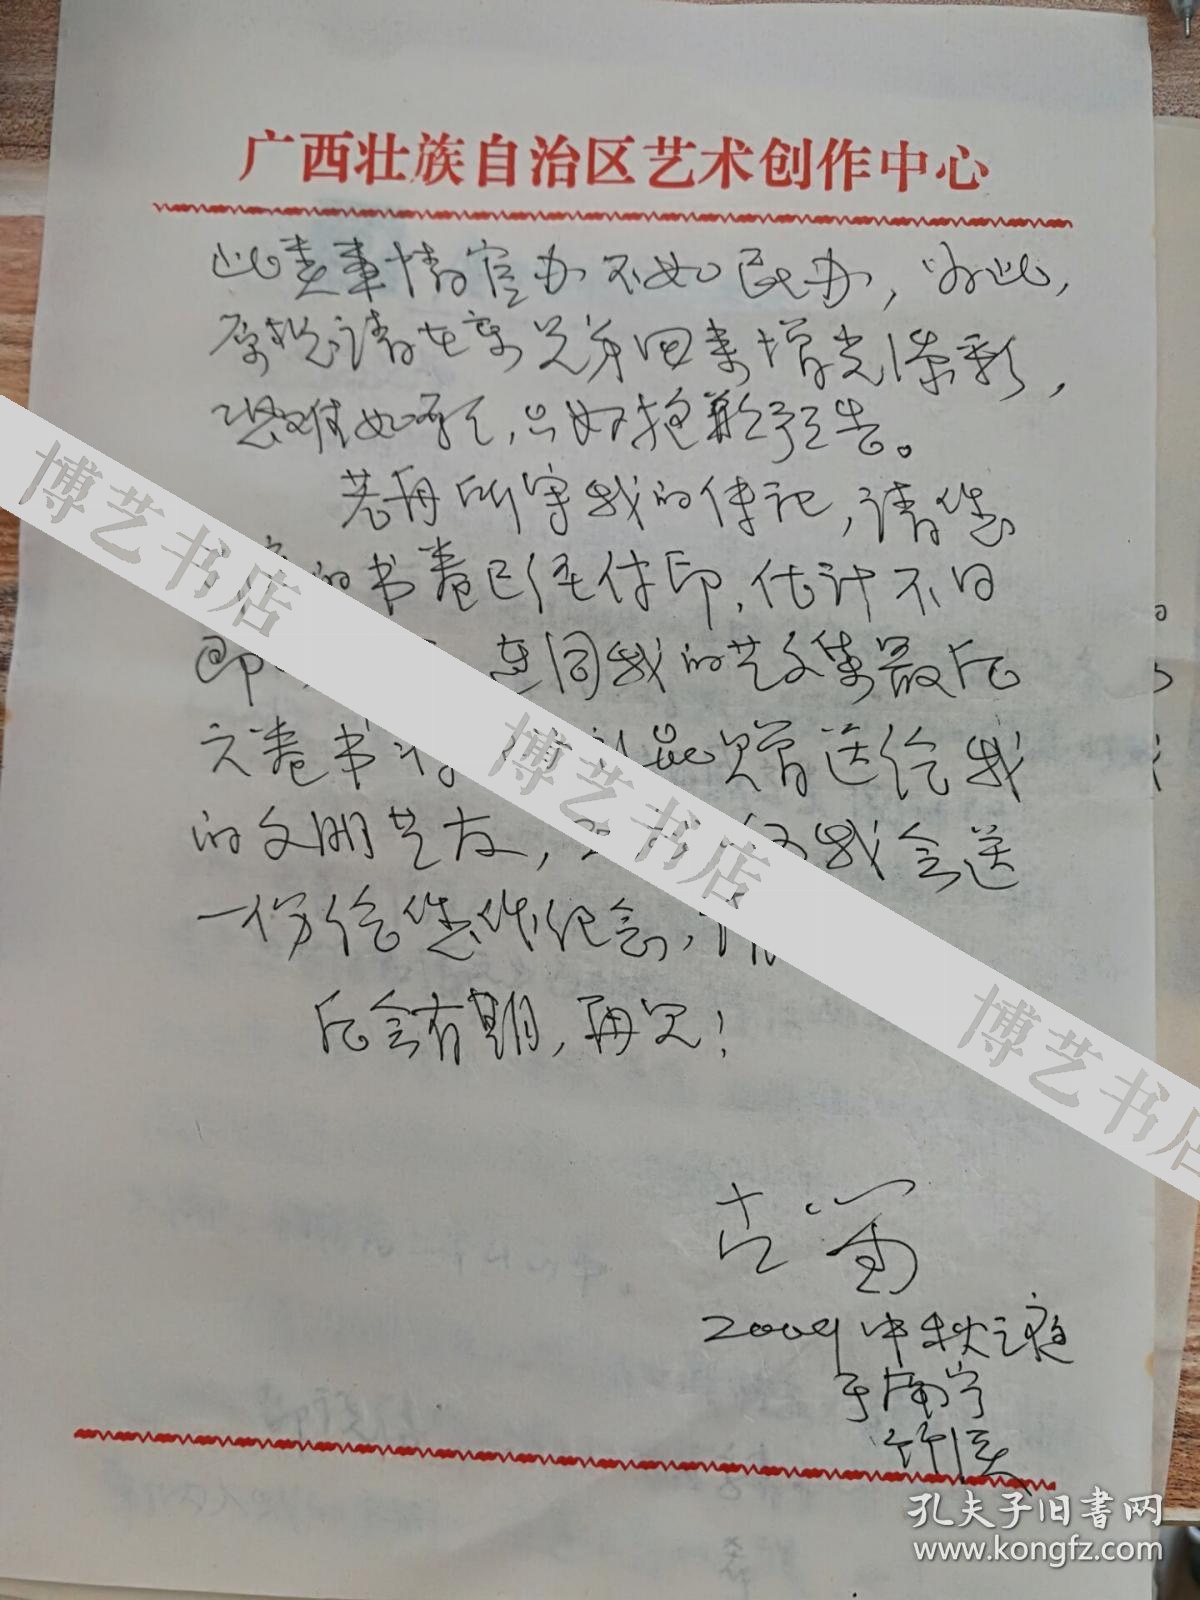 广西壮族自治区艺术创作中心
此类事情官办不如民办，为此，
原想请在京兄弟回来增光添彩，
恐难如愿，只好抱歉了
若再所字我的传记，请您
的书卷已经付印，估计不日
即 连同我的艺文集最后
六卷书 赠送给我
的文朋艺友，我会送
一份给您作纪念，
后会有期，再见！
古笛
2004中秋之夜
于南宁
博艺书店
博艺书店
博艺书店
孔夫子旧书网
www.kongfz.com